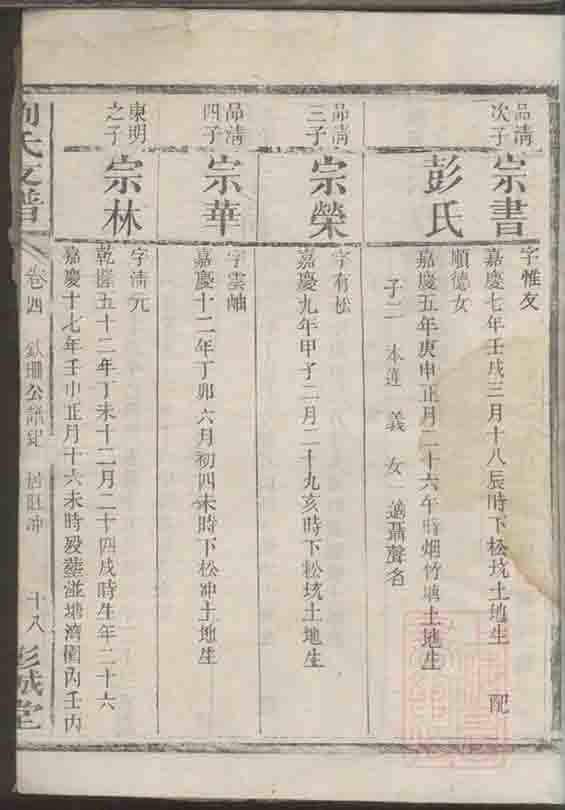 品清
次子
宗書
字惟友
嘉慶七年壬戌三月十八辰時下松坑土地生 配
彭氏
順德女
嘉慶五年庚申正月二十六午時烟竹塘土地生
子二 本蓮 義 女一適聶聲名
品清
三子
宗榮
字有松
嘉慶九年甲子二月二十九亥時下松坑土地生
品清
四子
宗華
字雲岫
嘉慶十二年丁卯六月初四未時下松冲土地生
東明
之子
宗林
字清元
乾隆五十二年丁未十二月二十四戌時生年二十六
嘉慶十七年壬申正月十六未時歿葬漨塘灣圍丙壬丙
氏支譜
卷四
公譜
冲
十八
彭城堂